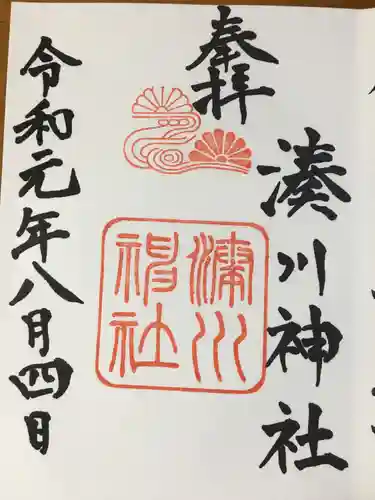 奉拝
湊川神社
湊川神社
令和元年八月四日